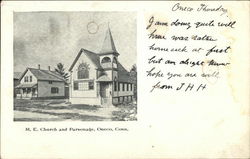 Oneco Thursday
I am doing quite well
hear was rather
home sick at first
but am alright now
hope you are well
from J H H
M. E. Church and Parsonage, Oneco, Conn.